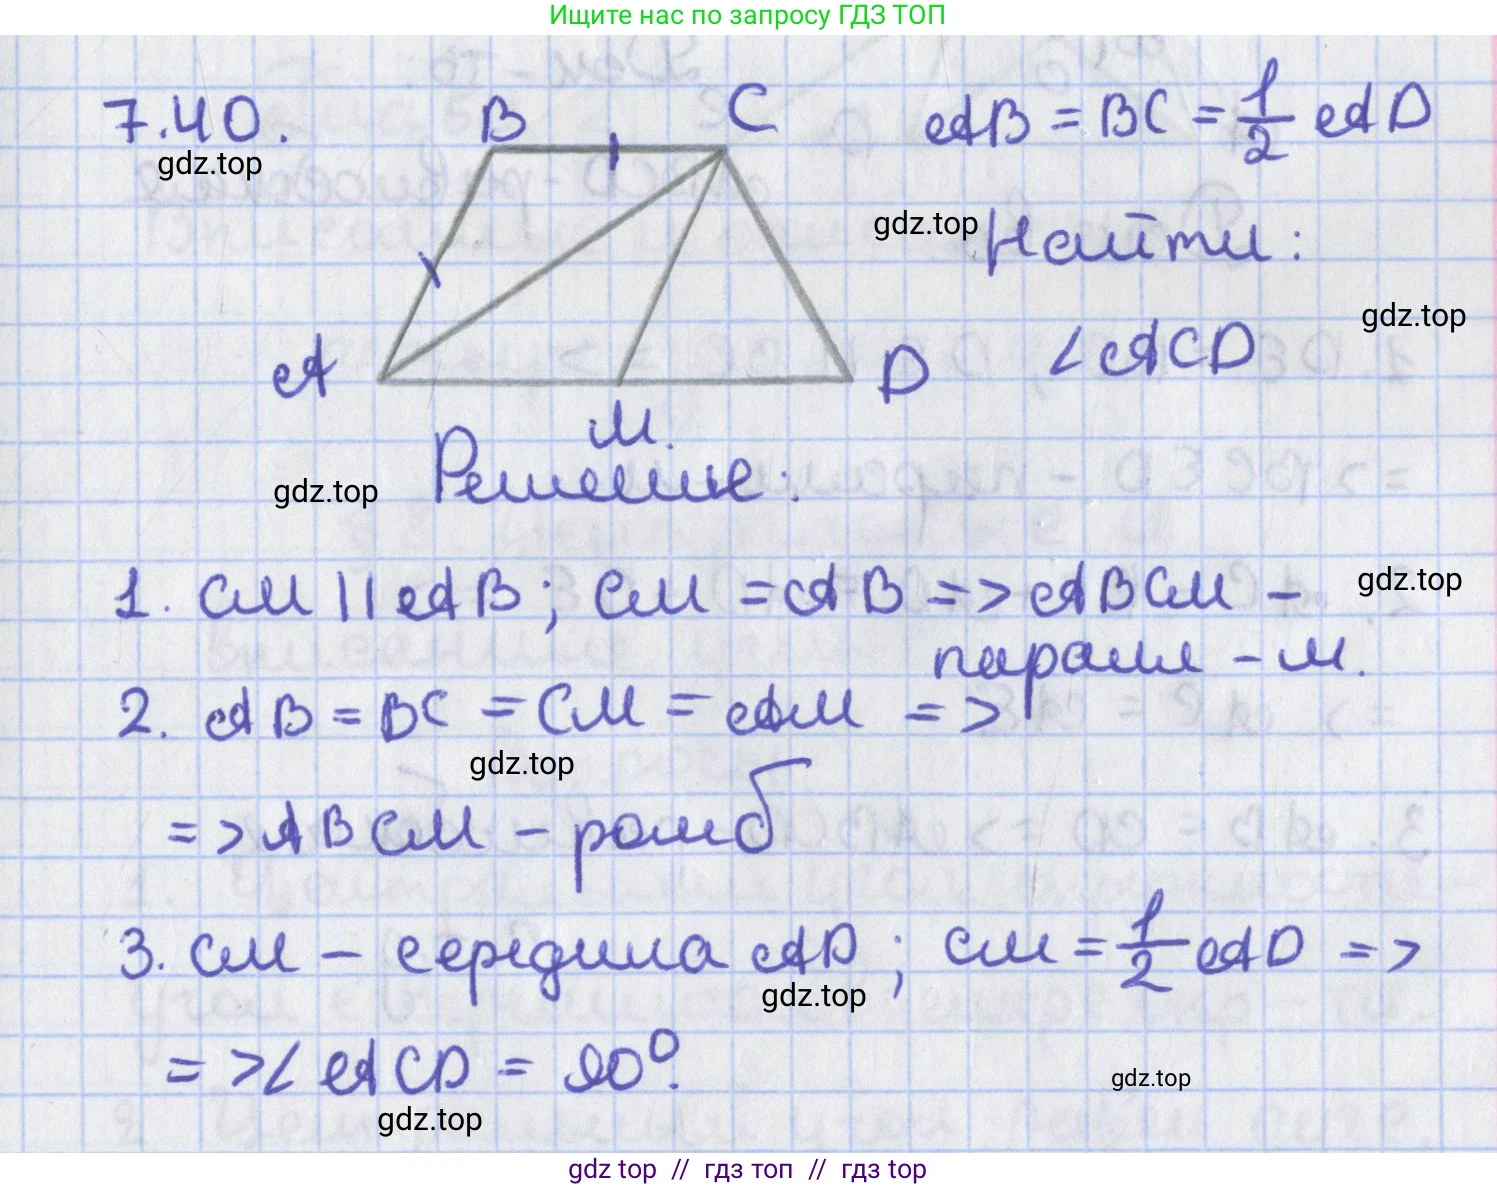 Ищите нас по запросу ГДЗ ТОП
7.40.
gdz.top
B
C
AB = BC = 1/2 AD
gdz.top
Найти:
gdz.top
∠ACD
A
D
M.
gdz.top
Решение:
1. CM || AB; CM = AB => ABCM –
gdz.top
паралл – м.
2. AB = BC = CM = AM =>
gdz.top
=> ABCM – ромб
3. CM – середина AD; CM = 1/2 AD =>
gdz.top
=> ∠ACD = 90°.
gdz.top
gdz.top
gdz top // гдз топ // гдз top